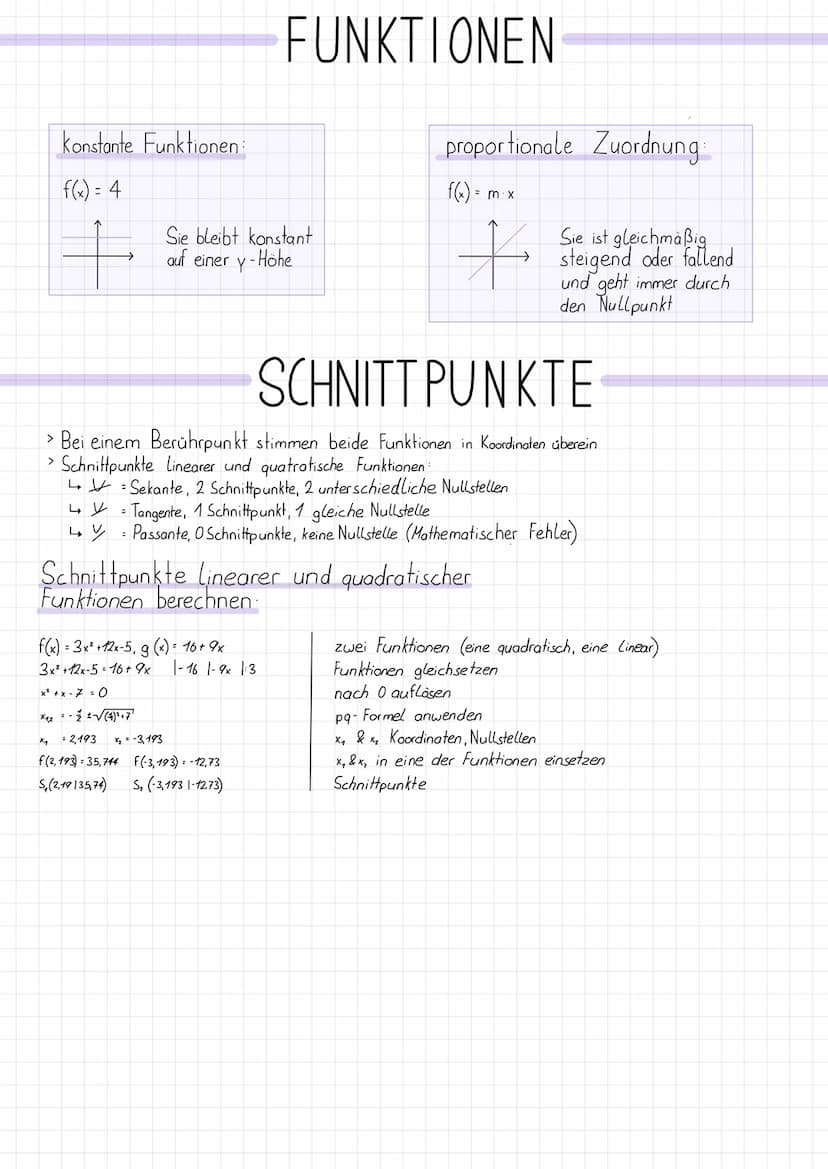 FUNKTIONEN
konstante Funktionen:
f(x) = 4
Sie bleibt konstant
auf einer y-Höhe
proportionale Zuordnung:
f(x) = m·x
Sie ist gleichmäßig
steigend oder fallend
und geht immer durch
den Nullpunkt
SCHNITTPUNKTE
> Bei einem Berührpunkt stimmen beide Funktionen in Koordinaten überein
> Schnittpunkte linearer und quatratische Funktionen:
↳ = Sekante, 2 Schnittpunkte, 2 unterschiedliche Nullstellen
↳ = Tangente, 1 Schnittpunkt, 1 gleiche Nullstelle
↳ = Passante, 0 Schnittpunkte, keine Nullstelle (Mathematischer Fehler)
Schnittpunkte linearer und quadratischer
Funktionen berechnen:
f(x) = 3x²+12x-5, g(x) = 16+9x
zwei Funktionen (eine quadratisch, eine linear)
3x²+12x-5=16+9x |-16 |-9x |:3
Funktionen gleichsetzen
x²+x-7=0
nach 0 auflösen
x₁,₂ = -½ ±√(½)²+7
pq-Formel anwenden
x₁ = 2,193 x₂ = -3,193
x₁ & x₂ Koordinaten, Nullstellen
f(2,193) = 35,744 f(-3,193) = -12,73
x₁ & x₂ in eine der Funktionen einsetzen
S₁(2,19|35,74) S₂(-3,193|-12,73)
Schnittpunkte